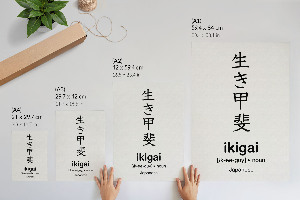 (A4)
21 x 29.7 cm
生き甲斐
ikigai
(A3)
29.7 x 42 cm
生き甲斐
ikigai
(A2)
42 x 59.4 cm
生き甲斐
ikigai
[ik-ee-guy] • noun
Japanese
(A1)
59.4 x 84 cm
生き甲斐
ikigai
[ik-ee-guy] • noun
Japanese